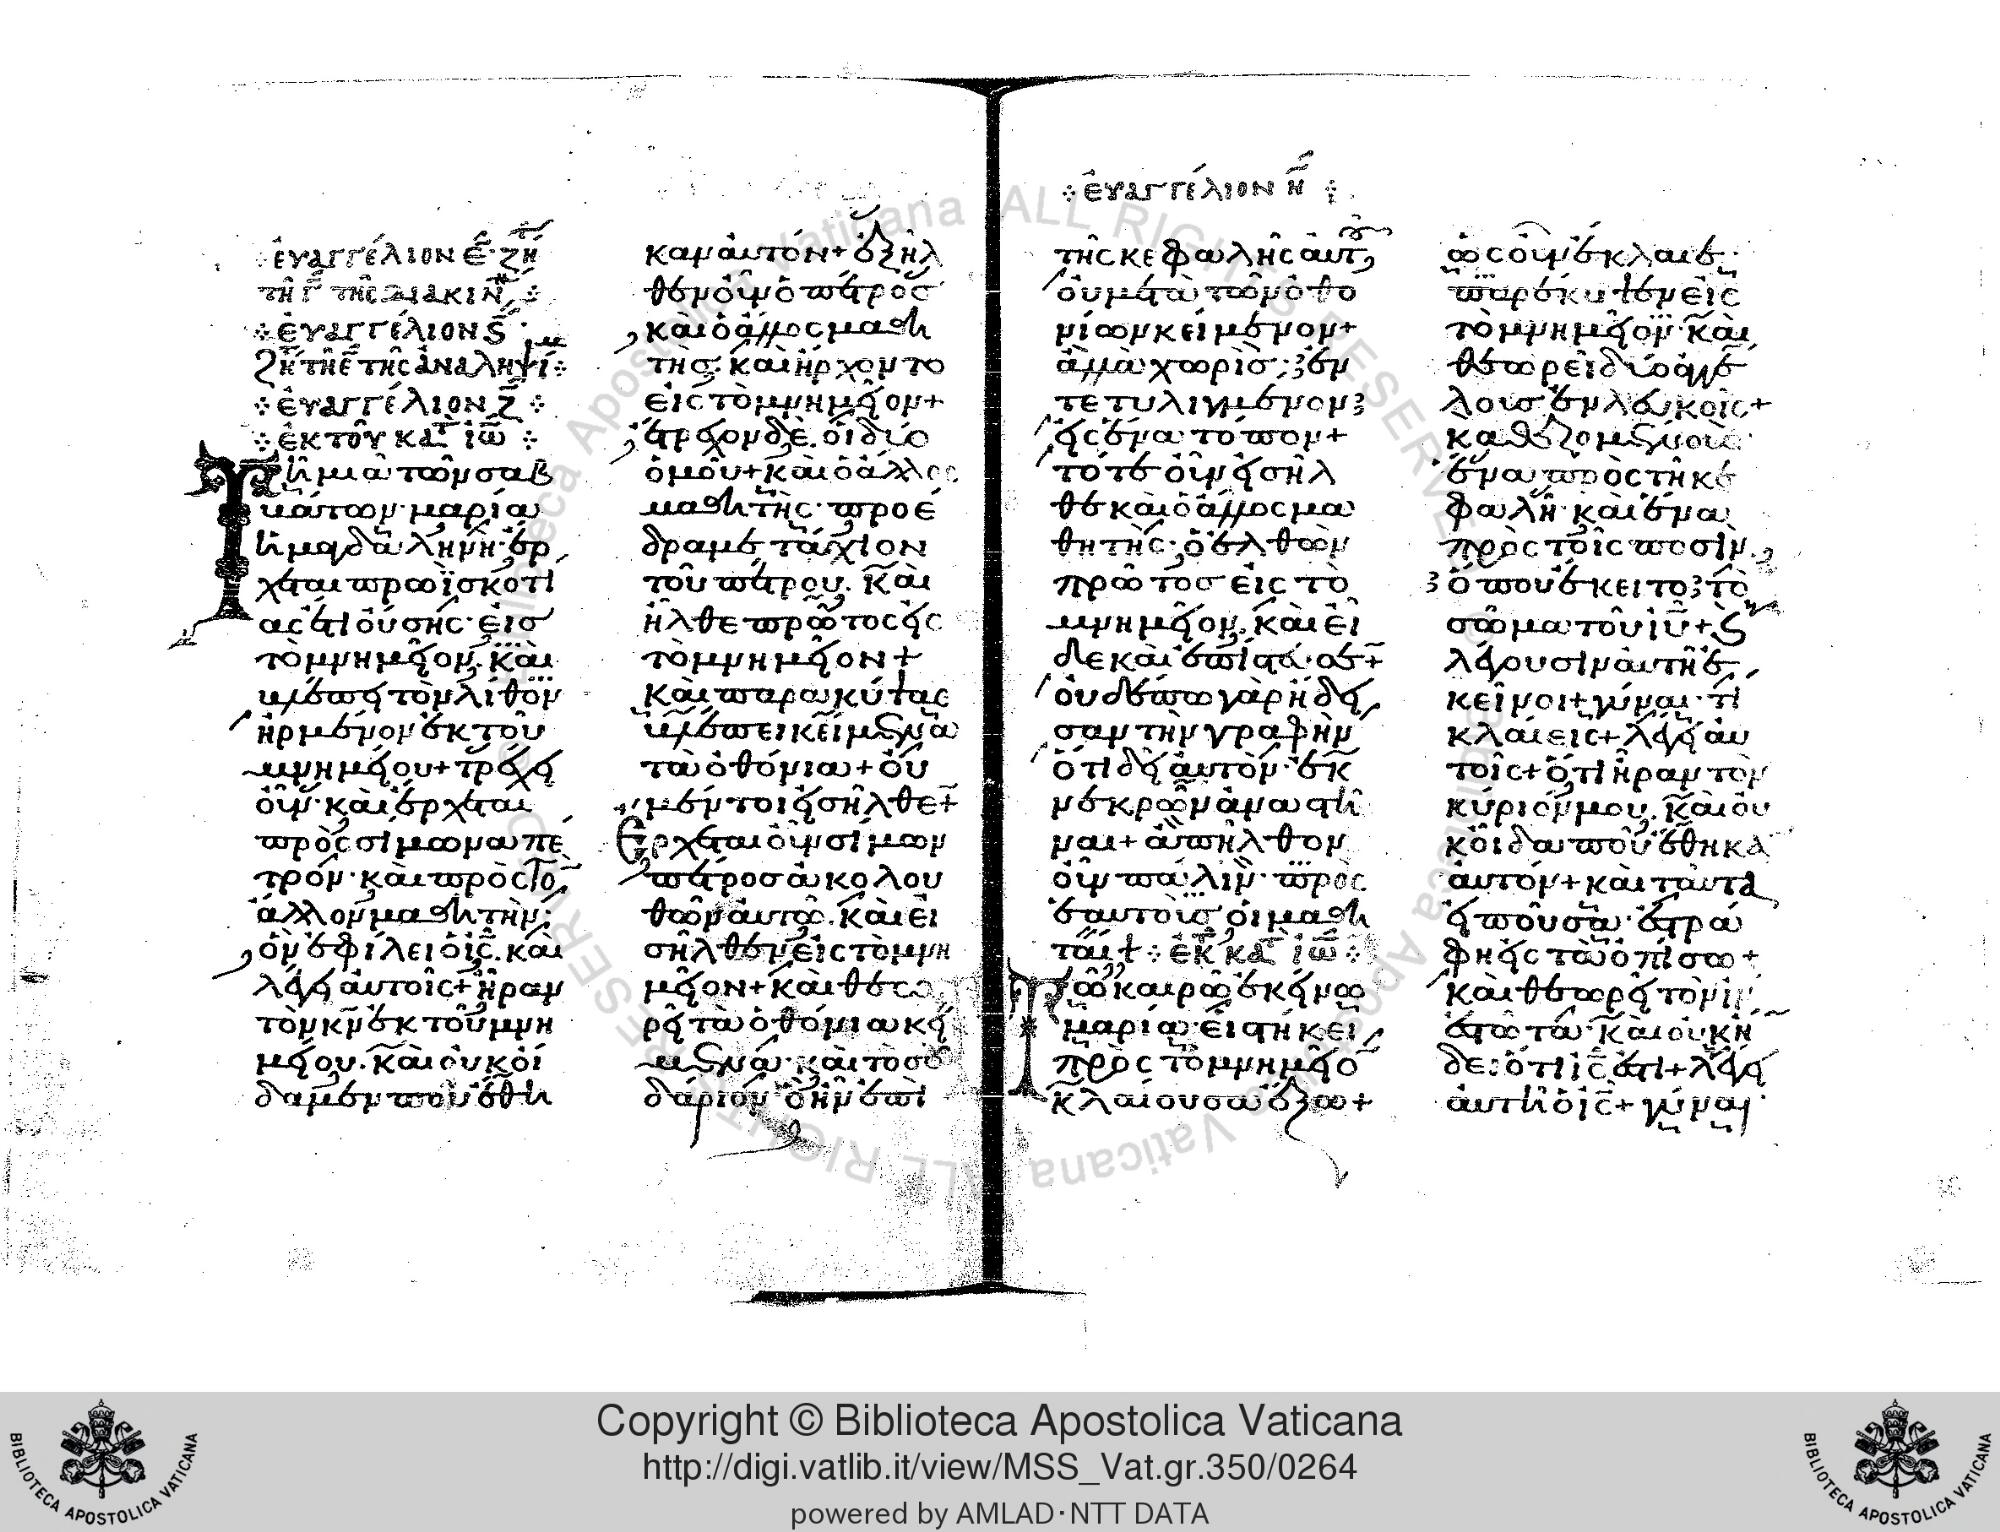 εὐαγγέλιον ε̄ ζή
τῆ γ̄ τῆς διακιν
εὐαγγέλιον ϛ̄
ζή τῆ ε̄ τῆς ἀναλήψι
εὐαγγέλιον ζ̄
ἐκ τοῦ κατ ἰω
Τῆ μιᾶ τῶν σαβ
βάτων· μαρία
ἡ μαγδαληνὴ· ἔρ
χεται πρωῒ σκοτί
ας ἔτι οὔσης· εἰσ
τὸ μνημεῖον. καὶ
βλέπει τὸν λίθον
ἠρμένον ἐκ τοῦ
μνημείου + τρέχει
οὖν· καὶ ἔρχεται
πρὸς σίμωνα πέ
τρον· καὶ πρὸς τὸ
ἄλλον μαθητὴν·
ὃν ἐφίλει ὁ ις. καὶ
λέγει αὐτοῖς + ἦραν
τὸν κν ἐκ τοῦ μνη
μείου. καὶ οὐκ οἴ
δαμεν ποῦ ἔθη
καν αὐτόν + ἐξῆλ
θεν οὖν ὁ πέτρος
καὶ ὁ ἄλλος μαθη
τής· καὶ ἤρχοντο
εἰς τὸ μνημεῖον +
ἔτρεχον δὲ. οἱ δύο
ὁμοῦ + καὶ ὁ ἄλλος
μαθητὴς· προέ
δραμε τάχιον
τοῦ πέτρου. καὶ
ἦλθε πρῶτος εἰς
τὸ μνημεῖον +
καὶ παρακύψας
βλέπει κείμενα
τὰ ὀθόνια + οὐ
μέν τοι εἰσῆλθε +
Ερχεται οὖν σίμων
πέτρος ἀκολου
θῶν αὐτῶ. καὶ εἰ
σῆλθεν εἰς τὸ μνη
μεῖον + καὶ θεω
ρεῖ τὰ ὀθόνια κεί
μενα· καὶ τὸ σου
δάριον ὃ ἦν ἐπὶ
εὐαγγέλιον η̄
τῆς κεφαλῆς αὐτ
οὐ μετὰ τῶν ὀθο
νίων κείμενον +
ἀλλὰ χωρὶς· ἐν
τετυλιγμένον
εἰς ἕνα τόπον +
τότε οὖν εἰσῆλ
θε καὶ ὁ ἄλλος μα
θητὴς· ὁ ἐλθὼν
πρῶτος εἰς τὸ
μνημεῖον. καὶ εἶ
δε καὶ ἐπίστευσε +
οὐδέπω γὰρ ἤδει
σαν τὴν γραφὴν
ὅτι δεῖ αὐτὸν· ἐκ
νεκρῶν ἀναστῆ
ναι + ἀπῆλθον
οὖν πάλιν· πρὸς
ἑαυτοὺς οἱ μαθη
ταί + ἐκ κατ ἰω
Τῶ καιρῶ ἐκείνω
μαρία· εἱστήκει
πρὸς τὸ μνημεῖο
κλαίουσα ἔξω +
ὡς οὖν ἔκλαιε·
παρέκυψεν εἰς
τὸ μνημεῖον· καὶ
θεωρεῖ δύο ἀγγέ
λους ἐν λευκοῖς +
καθεζομένους·
ἕνα πρὸς τῆ κε
φαλῆ· καὶ ἕνα
πρὸς τοῖς ποσὶν.
ὅπου ἔκειτο τὸ
σῶμα τοῦ ιυ + καὶ
λέγουσιν αὐτῆ ἐ
κεῖνοι + γύναι· τί
κλαίεις + λέγει αὐ
τοῖς + ὅτι ἦραν τὸν
κύριόν μου. καὶ οὐ
κ οἶδα ποῦ ἔθηκα
αὐτόν + καὶ ταῦτα
εἰποῦσα· ἐστρά
φη εἰς τὰ ὀπίσω +
καὶ θεωρεῖ τὸν ιν
ἑστῶτα· καὶ οὐκ ἤ
δει· ὅτι ις ἐστι + λέγει
αὐτῆ ὁ ις + γύναι·
Copyright © Biblioteca Apostolica Vaticana
http://digi.vatlib.it/view/MSS_Vat.gr.350/0264
powered by AMLAD·NTT DATA
BIBLIOTECA APOSTOLICA VATICANA
BIBLIOTECA APOSTOLICA VATICANA